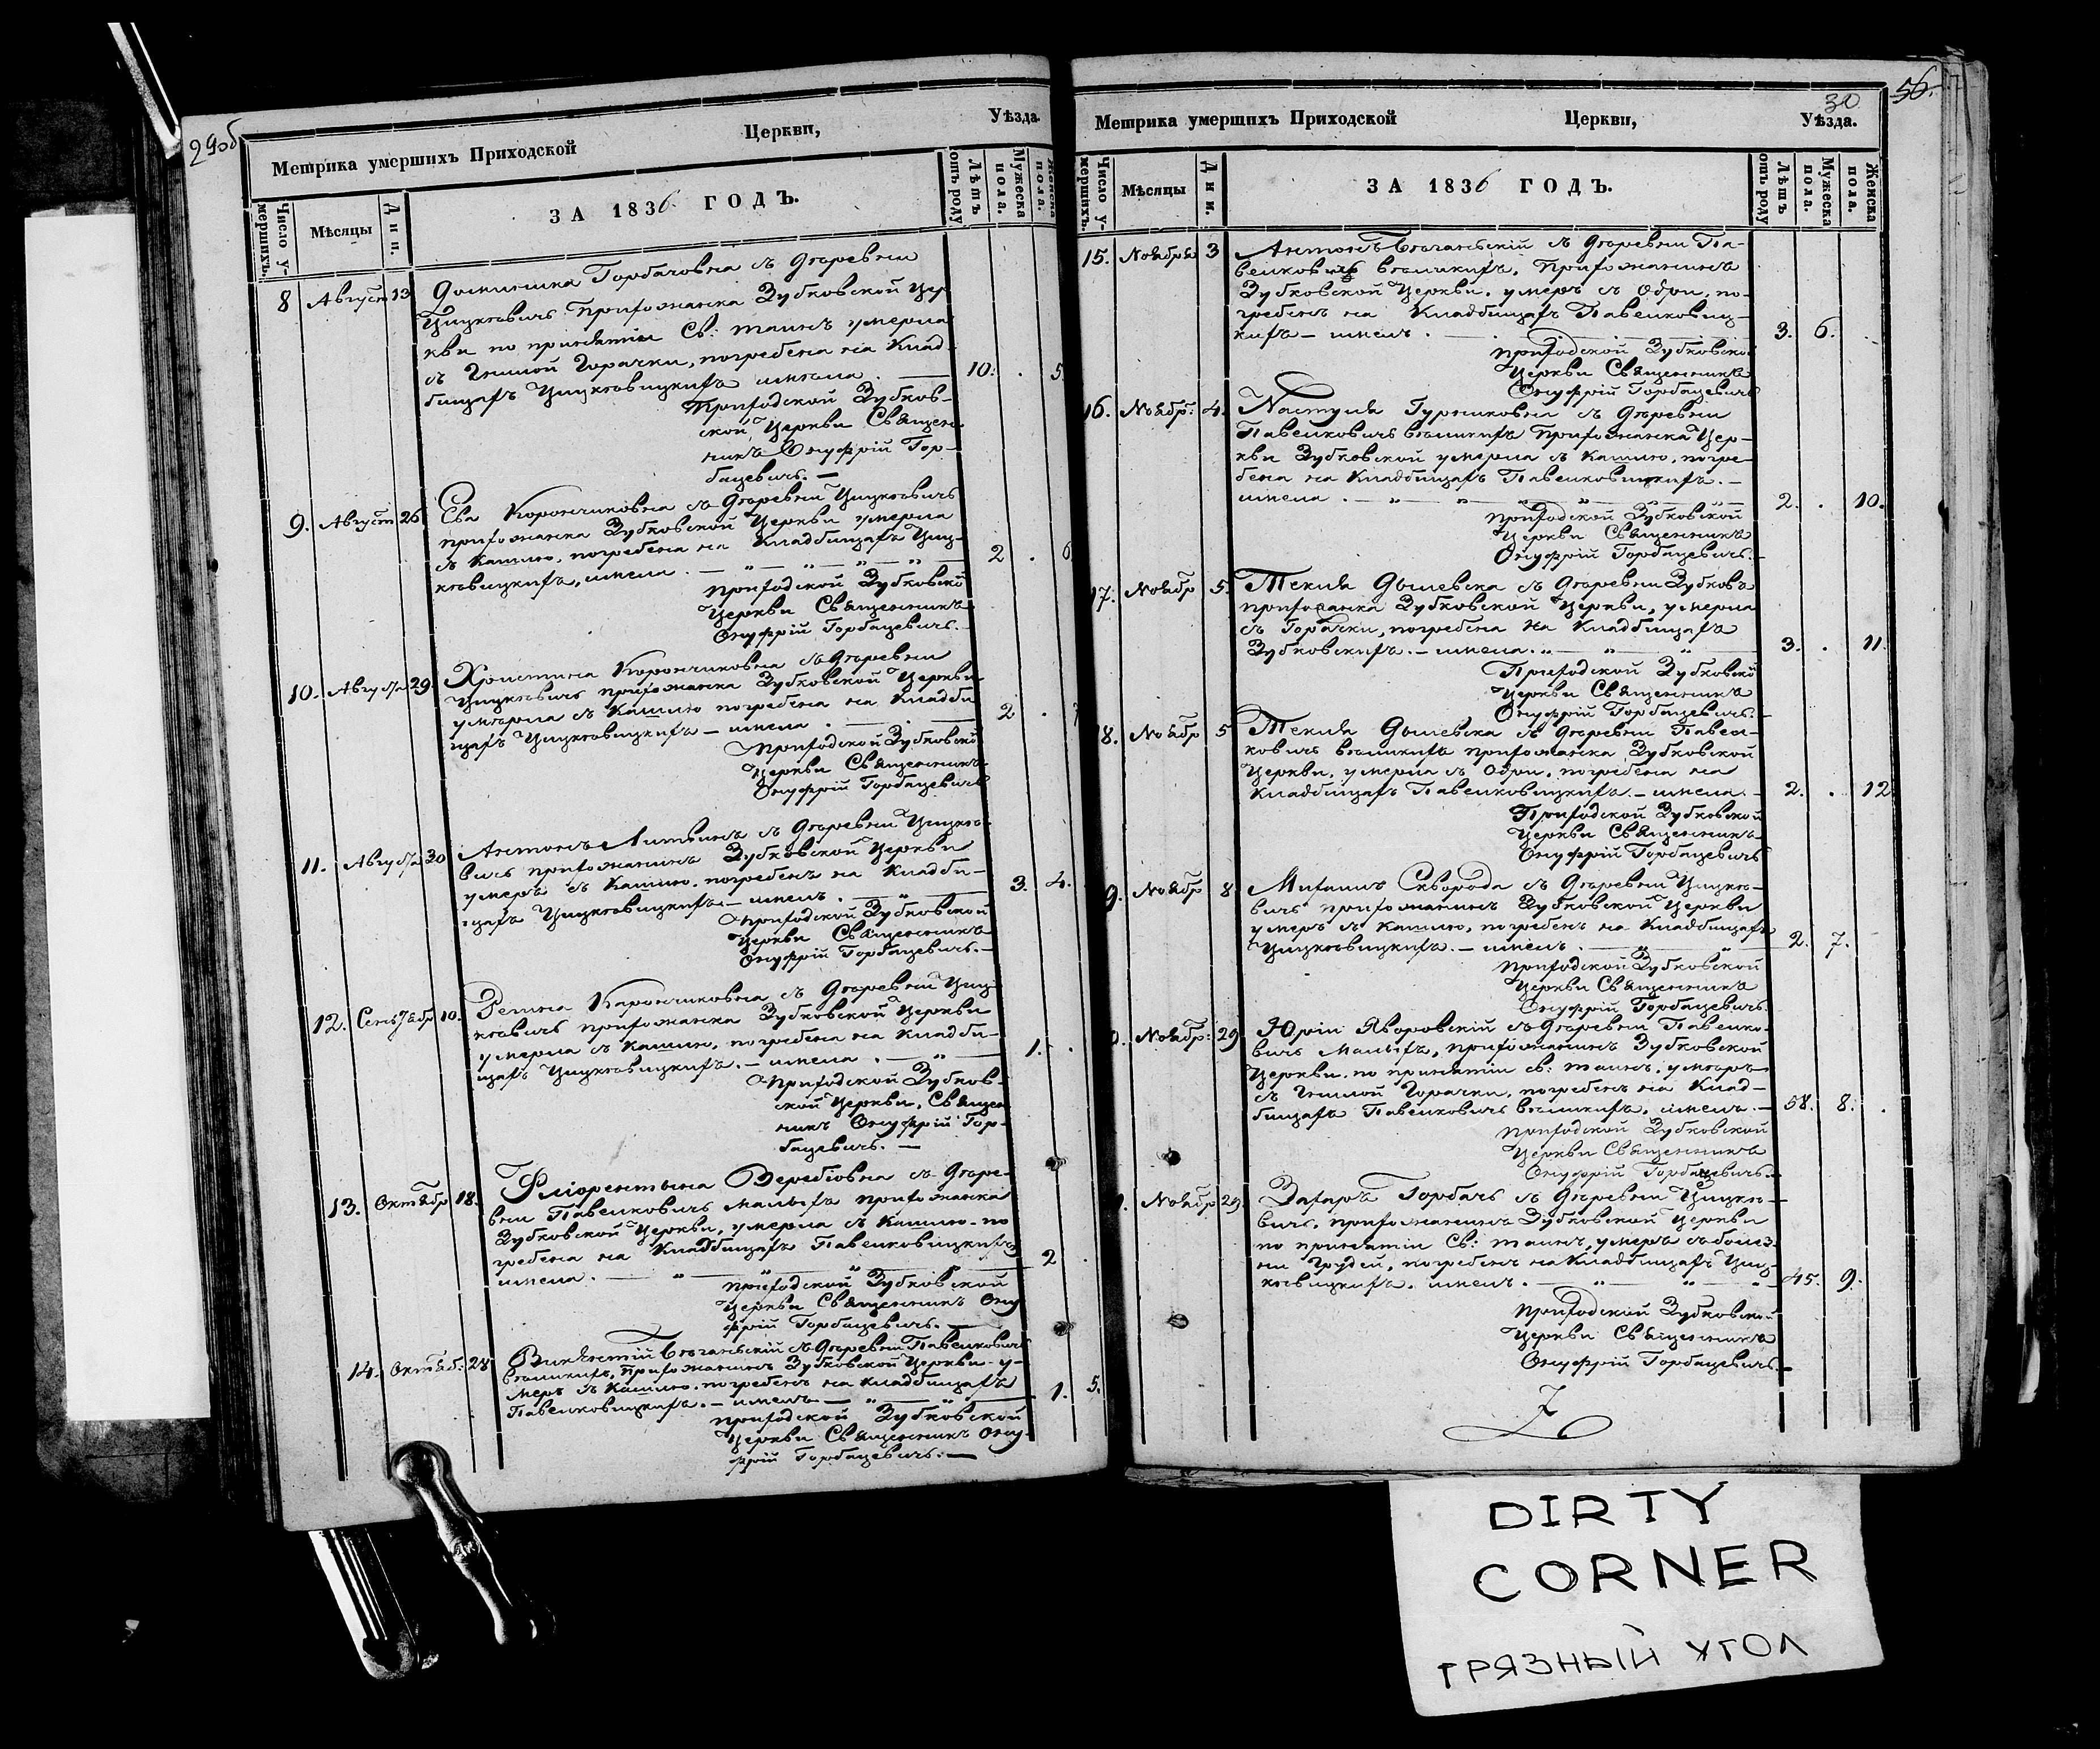 29об
Метрика умершихъ Приходской Церкви, Уѣзда.
Число умершихъ. Мѣсяцы Дни. ЗА 1836 ГОДЪ. Лѣтъ отъ роду Мужеска пола. Женска пола.
8 Август 13 Доминика Горбачовна съ Дѣревни
Цицковичъ Прихожанка Зубковской Цер
кви по принятіи Св: таинъ умерла
съ Гнилой Горачки, погребена на Клад
бищахъ Цицковицкихъ имѣла . — 10. . 5
Приходской Зубков-
ской Церкви Священ
никъ Онуфрій Гор-
бацевичъ. —
9. Август 26 Ева Корончиковна съ Дѣревни Цицковичъ
прихожанка Зубковской Церкви умерла
съ Кашлю, погребена на Кладбищахъ Циц-
ковицкихъ, имела . — „ — „ — „ — „ 2 . 6
Приходской Зубковской
Церкви Священникъ
Онуфрій Горбацевичъ. —
10. Августа 29 Христина Корончиковна съ Дѣревни
Цицковичъ прихожанка Зубковской Церкви
умѣрла съ Кашлю погребена на Кладби
щахъ Цицковицкихъ — имела . — . — 2 . 7
Приходской Зубковской
Церкви Священникъ
Онуфрій Горбацевичъ
11. Августа 30 Антонъ Литвинъ съ Дѣревни Цицко-
вичъ прихожанинъ Зубковской Церкви
умеръ съ Кашлю. погребенъ на Кладби-
щахъ Цицковицкихъ. — имелъ . — „ — 3. 4.
Приходской Зубковской
Церкви Священникъ
Онуфрій Горбацевичъ. —
12. Сентябр 10. Регина Карончиковна съ Дѣревни Циц-
ковичъ прихожанка Зубковской Церкви
умерла съ Кашлю, погребена на Кладби-
щахъ Цицковицкихъ. — имела . — „ — 1. .
Приходской Зубков-
ской Церкви, Священ
никъ Онуфрій Гор-
бацевичъ. —
13. Октябр 18. Флiорентына Веребіовна съ Дѣре-
вни Павелковичъ малыхъ прихожанка
Зубковской Церкви, умерла съ Кашлю. по
гребена на Кладбищахъ Павелковицкихъ
имела. — „ — „ — „ — 2 .
Приходской Зубковской
Церкви Священникъ Ону
фрій Горбацевичъ. —
14. Октяб. 28 Викентій Бѣганьскій съ Дѣревни Павелковичъ
вѣликихъ, Прихожанинъ Зубковской Церкви у-
меръ съ Кашлю. погребенъ на кладбищахъ
Павелковицкихъ. — имелъ — „ — „ — 1. 5.
Приходской Зубковской
Церкви Священникъ Ону-
фрій Горбацевичъ. —
30 56.
Метрика умершихъ Приходской Церкви, Уѣзда.
Число умершихъ. Мѣсяцы Дни. ЗА 1836 ГОДЪ. Лѣтъ отъ роду Мужеска пола. Женска пола.
15. Ноября 3 Антонъ Бѣганьскій съ Дѣревни Па-
велковичъ вѣликихъ, Прихожанинъ
Зубковской Церкви. умеръ съ Одри, по-
гребенъ на Кладбищахъ Павелковиц-
кихъ — имелъ . — . — 3. 6. .
Приходской Зубковской
Церкви Священникъ
Онуфрій Горбацевичъ
16. Ноябр: 4. Настуля Гурликовна съ Дѣревни
Павелковичъ вѣликихъ Прихожанка Цер-
кви Зубковской умерла съ Кашлю, погре-
бена на Кладбищахъ Павелковицкихъ. —
имела . — „ — „ — „ — „ — „ — 2. . 10.
Приходской Зубковской
Церкви Священникъ
Онуфрій Горбацевичъ.
17. Ноябр 5. Текля Дылевска съ Дѣревни Зубковъ
прихожанка Зубковской Церкви, умерла
съ Горачки, погребена на Кладбищахъ
Зубковскихъ. — имела. „ — „ — „ — 3. . 11.
Приходской Зубковской
Церкви Священникъ
Онуфрій Горбацевичъ. —
8. Ноябр 5 Текля Дылевска съ Дѣревни Павел-
ковичъ вѣликихъ прихожанка Зубковской
Церкви, умерла съ Одри, погребена на
Кладбищахъ Павелковицкихъ. — имела. — 2. . 12
Приходской Зубковской
Церкви Священникъ
Онуфрій Горбацевичъ
9. Ноябр 8 Михаилъ Скворода съ Дѣревни Цицко-
вичъ прихожанинъ Зубковской Церкви
умеръ съ кашлю, погребенъ на Кладбищахъ
Цицковицкихъ. — имелъ . — „ — „ 2. 7.
Приходской Зубковской
Церкви Священникъ
Онуфрій Горбацевичъ.
0. Ноябр: 29 Юрій Яворовскій съ Дѣревни Павелко-
вичъ Малыхъ, прихожанинъ Зубковской
Церкви. по принятіи св: таинъ. умѣръ
съ Гнилой Горачки, погребенъ на Клад-
бищахъ Павелковичъ вѣликихъ, имелъ — 58. 8. .
Приходской Зубковской
Церкви Священникъ
Онуфрій Горбацевичъ. —
1. Ноябр 29. Захаръ Горбачъ съ Дѣревни Цицко-
вичъ. прихожанинъ Зубковской Церкви
по принятіи Св: таинъ, умеръ съ болез-
ни Грудей, погребенъ на Кладбищахъ Циц
ковицкихъ. имелъ . — „ — „ — „ 45. 9.
Приходской Зубковской
Церкви Священникъ
Онуфрій Горбацевичъ. —
DIRTY
CORNER
ГРЯЗНЫЙ УГОЛ